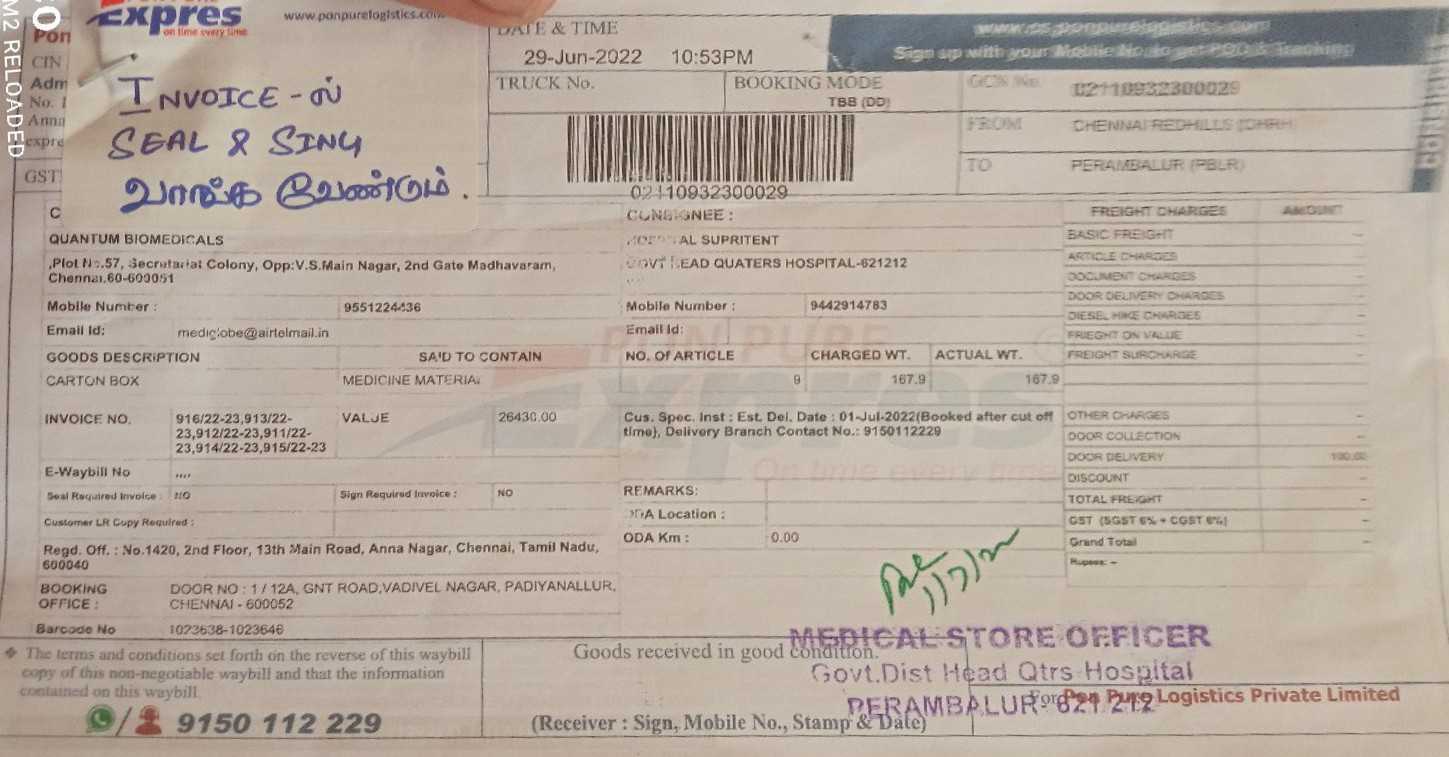 M2 RELOADED
Expres
on time every time
www.ponpurelogistics.com
Pon
CIN
Adm
No. 1
Anna
expre
GST
INVOICE -ல்
SEAL & SING
வாங்க வேண்டும்.
DATE & TIME
29-Jun-2022 10:53PM
TRUCK No.
BOOKING MODE
TBB (DD)
02110932300029
www.cs.ponpurelogistics.com
Sign up with your Mobile No. to get POD & Tracking
GCN No. 02110932300029
FROM CHENNAI REDHILLS (CHRH)
TO PERAMBALUR (PBLR)
C
QUANTUM BIOMEDICALS
,Plot No.57, Secretariat Colony, Opp:V.S.Main Nagar, 2nd Gate Madhavaram,
Chennai.60-600051
Mobile Number : 9551224436
Email Id: mediglobe@airtelmail.in
CONSIGNEE :
AL SUPRITENT
GOVT HEAD QUATERS HOSPITAL-621212
Mobile Number : 9442914783
Email Id:
GOODS DESCRIPTION SAID TO CONTAIN NO. Of ARTICLE CHARGED WT. ACTUAL WT.
CARTON BOX MEDICINE MATERIAL 9 167.9 167.9
INVOICE NO. 916/22-23,913/22-
23,912/22-23,911/22-
23,914/22-23,915/22-23
VALUE 26430.00
Cus. Spec. Inst : Est. Del. Date : 01-Jul-2022(Booked after cut off
time), Delivery Branch Contact No.: 9150112229
E-Waybill No ,,,,
Seal Required Invoice : NO Sign Required Invoice : NO
Customer LR Copy Required :
REMARKS:
ODA Location :
ODA Km : 0.00
Regd. Off. : No.1420, 2nd Floor, 13th Main Road, Anna Nagar, Chennai, Tamil Nadu,
600040
BOOKING
OFFICE :
DOOR NO : 1 / 12A, GNT ROAD,VADIVEL NAGAR, PADIYANALLUR,
CHENNAI - 600052
Barcode No 1023638-1023646
FREIGHT CHARGES AMOUNT
BASIC FREIGHT -
ARTICLE CHARGES -
DOCUMENT CHARGES -
DOOR DELIVERY CHARGES -
DIESEL HIKE CHARGES -
FRIEGHT ON VALUE -
FREIGHT SURCHARGE -
OTHER CHARGES -
DOOR COLLECTION -
DOOR DELIVERY 100.00
DISCOUNT -
TOTAL FREIGHT -
GST (SGST 6% + CGST 6%) -
Grand Total -
Rupees: -
PON PURE
EXPRES
On time every time
1/7/22
❖ The terms and conditions set forth on the reverse of this waybill
copy of this non-negotiable waybill and that the information
contained on this waybill
9150 112 229
Goods received in good condition.
(Receiver : Sign, Mobile No., Stamp & Date)
MEDICAL STORE OFFICER
Govt.Dist Head Qtrs Hospital
PERAMBALUR- 621 212
For Pon Pure Logistics Private Limited